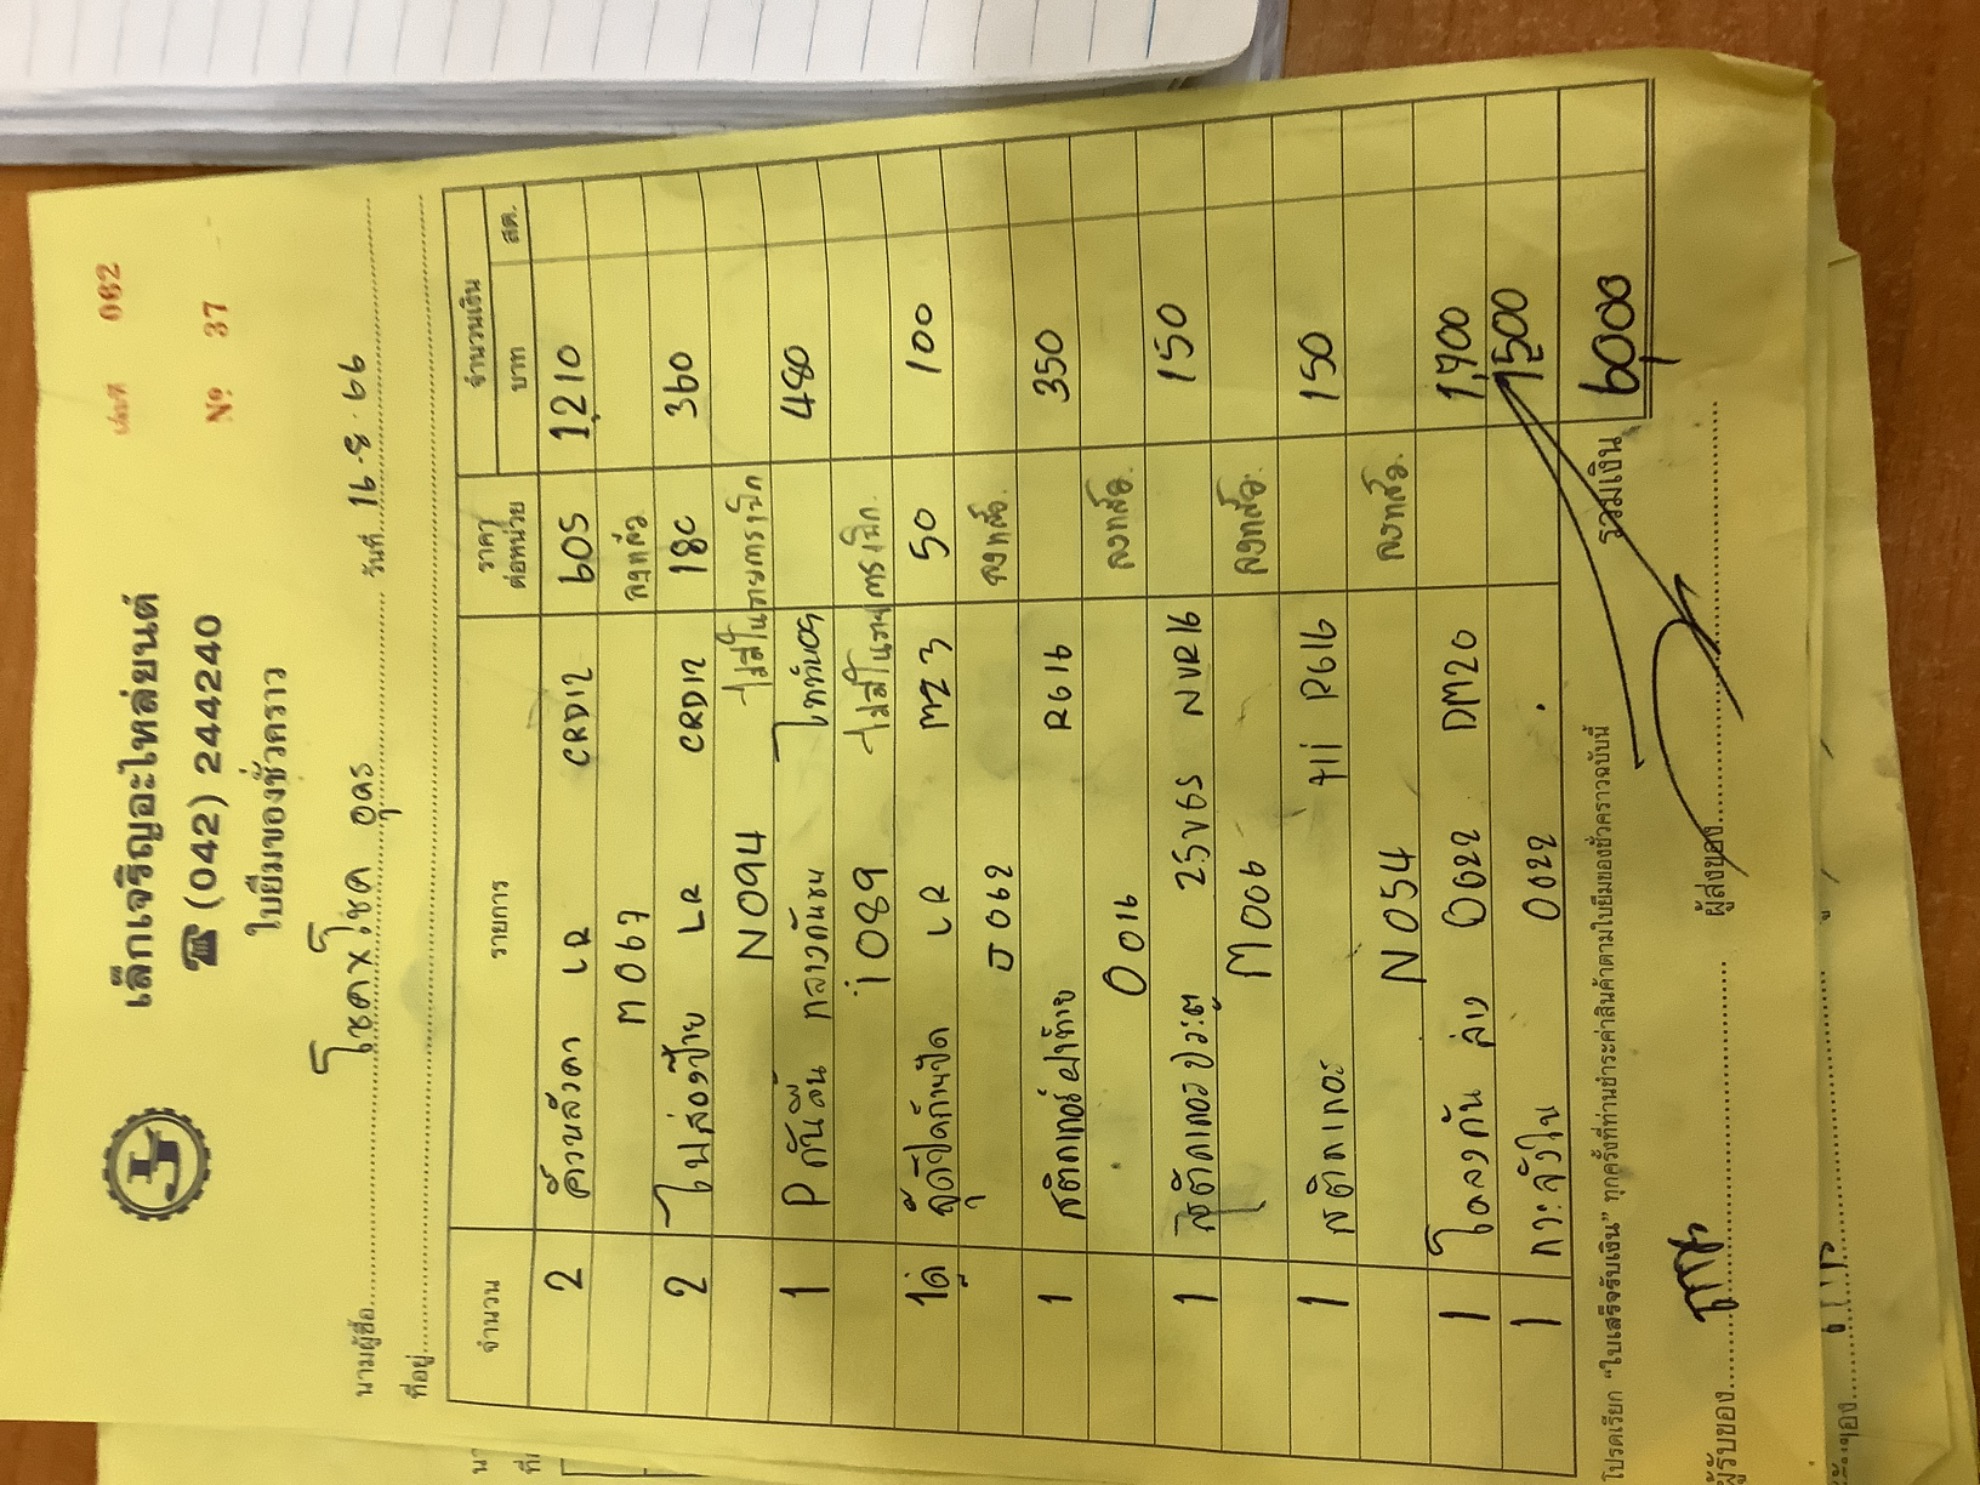 เล่มที่ 062
เล็กเจริญอะไหล่ยนต์
☎ (042) 244240
Nº 37
ใบยืมของชั่วคราว
นามผู้ซื้อ โชคxโชค อุดร วันที่ 16.8.66
ที่อยู่
จำนวน รายการ ราคาต่อหน่วย จำนวนเงิน
บาท สต.
2 คิ้วบนล้วดา LR CRD12 605 1,210
M067 ลงแล้ว
2 ไฟส่องป้าย LR CRD12 180 360
N094 ไม่มีในรายการเบิก
1 P กันลื่น กลางกันชน ไททันอร 480
i089 ไม่มีในรายการเบิก
1คู่ M23 50 100
J062 ลงแล้ว
1 สติกเกอร์ฝาท้าย R616 350
O016 ลงแล้ว.
1 สติกเกอร์ประตู 25VGS NVR16 150
M006 ลงแล้ว.
1 สติกเกอร์ R616 150
N054 ลงแล้ว.
1 โครงกัน ล่าง O022 DM20 1,700
1 กระจังใน O022 1,500
รวมเงิน 6,000
โปรดเรียก “ใบเสร็จรับเงิน” ทุกครั้งที่ท่านชำระค่าสินค้าตามใบยืมของชั่วคราวฉบับนี้
ผู้รับของ ผู้ส่งของ